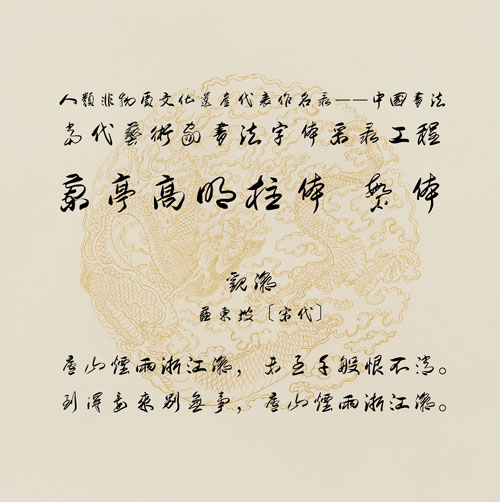 人類非物质文化遺產代表作名录——中國書法
當代藝術家書法字体采录工程
蘭亭高明柱体 繁体
觀潮
蘇東坡〔宋代〕
廬山煙雨浙江潮，未至千般恨不消。
到得還來别無事，廬山煙雨浙江潮。